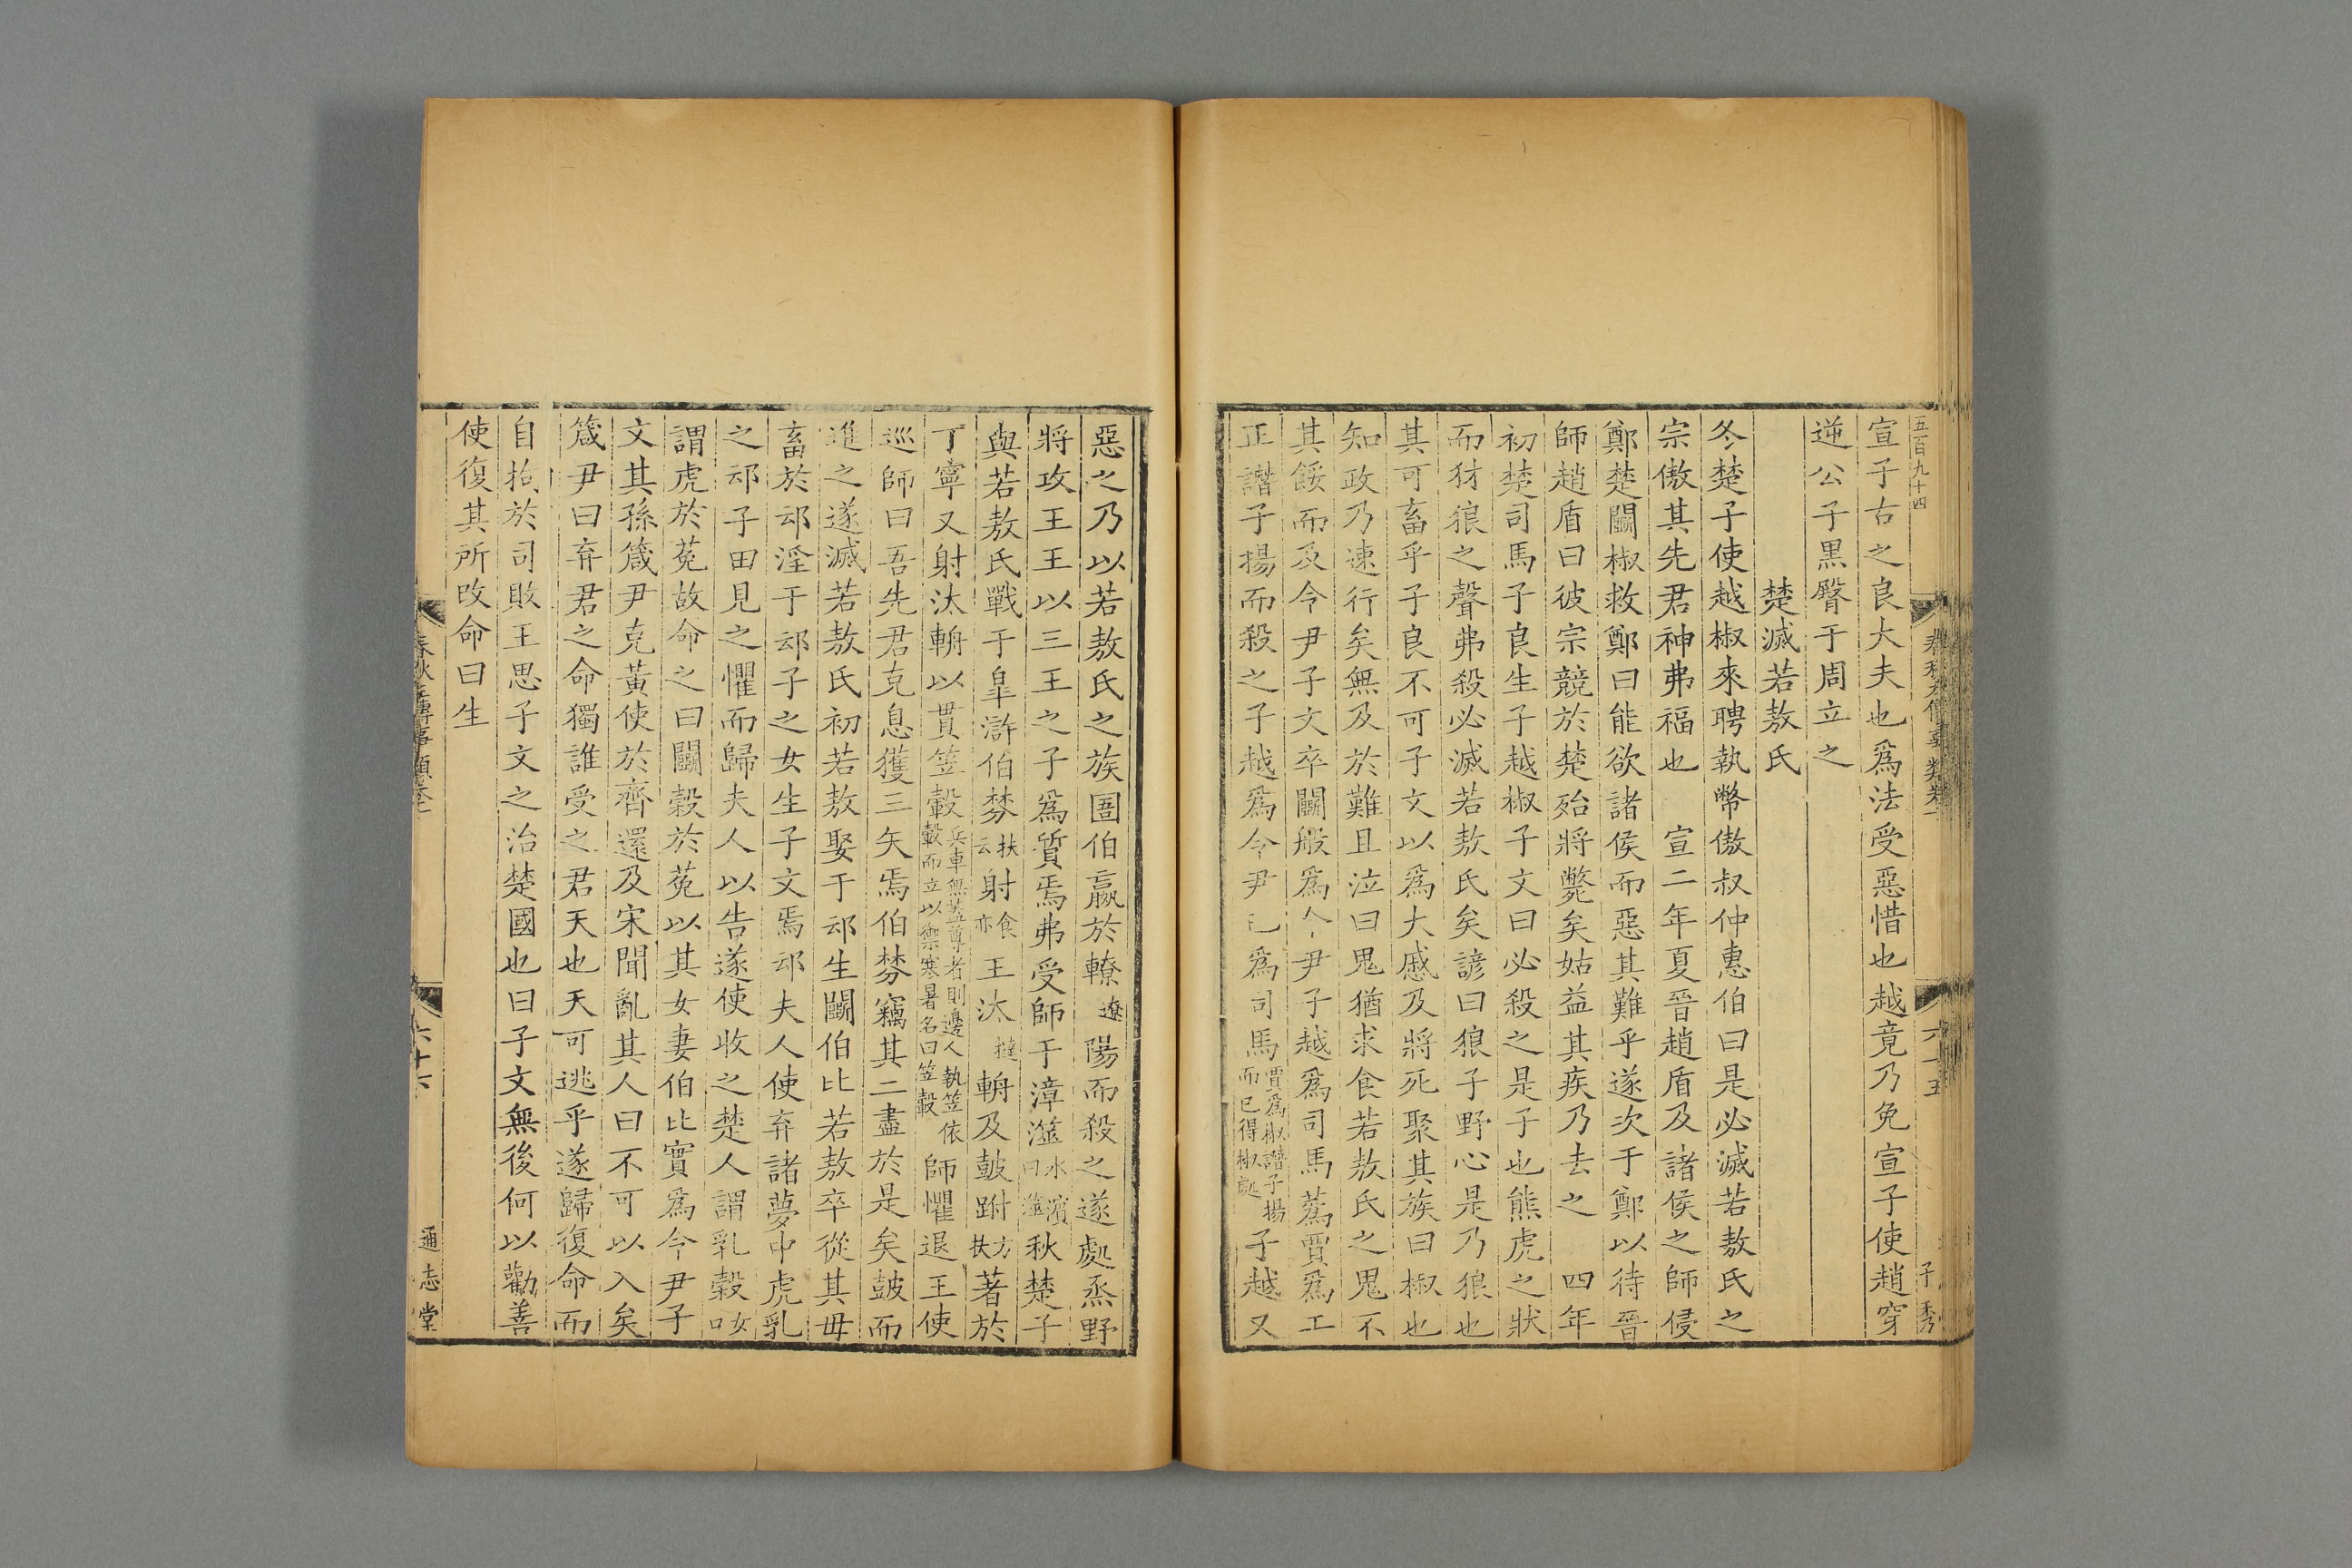 五百九十四
宣子古之良大夫也爲法受惡惜也越竟乃免宣子使趙穿
逆公子黑臀于周立之
楚滅若敖氏
冬楚子使越椒來聘執幣傲叔仲惠伯曰是必滅若敖氏之
宗傲其先君神弗福也　宣二年夏晉趙盾及諸侯之師侵
鄭楚鬬椒救鄭曰能欲諸侯而惡其難乎遂次于鄭以待晉
師趙盾曰彼宗競於楚殆將斃矣姑益其疾乃去之　四年
初楚司馬子良生子越椒子文曰必殺之是子也熊虎之狀
而豺狼之聲弗殺必滅若敖氏矣諺曰狼子野心是乃狼也
其可畜乎子良不可子文以爲大慼及將死聚其族曰椒也
知政乃速行矣無及於難且泣曰鬼猶求食若敖氏之鬼不
其餒而及令尹子文卒鬬般爲令尹子越爲司馬蔿賈爲工
正譖子揚而殺之子越爲令尹已爲司馬賈爲椒譖子揚而已得椒處子越又
子秀
惡之乃以若敖氏之族圄伯嬴於轑遼陽而殺之遂處烝野
將攻王王以三王之子爲質焉弗受師于漳澨水濱曰澨秋楚子
與若敖氏戰于皐滸伯棼扶云射食亦王汰撻輈及鼓跗方扶著於
丁寧又射汰輈以貫笠轂兵車無蓋尊者則邊人執笠依轂而立以禦寒暑名曰笠轂師懼退王使
巡師曰吾先君克息獲三矢焉伯棼竊其二盡於是矣鼓而
進之遂滅若敖氏初若敖娶于䢵生鬬伯比若敖卒從其毋
畜於䢵淫于䢵子之女生子文焉䢵夫人使弃諸夢中虎乳
之䢵子田見之懼而歸夫人以告遂使收之楚人謂乳穀奴口
謂虎於菟故命之曰鬬穀於菟以其女妻伯比實爲令尹子
文其孫箴尹克黃使於齊還及宋聞亂其人曰不可以入矣
箴尹曰弃君之命獨誰受之君天也天可逃乎遂歸復命而
自拘於司敗王思子文之治楚國也曰子文無後何以勸善
使復其所改命曰生
春秋左傳事類卷一
六十六
通志堂